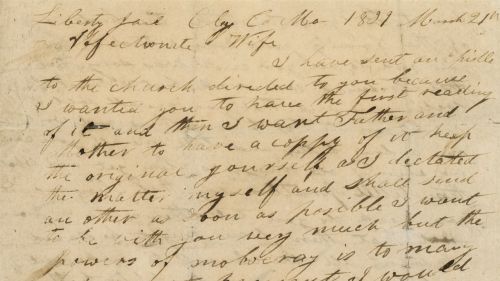 Liberty Jail Clay Co Mo 1839 March 21th
Affectionate Wife
I have sent an
to the church directed to you because
I wanted you to have the first reading
of it and then I want Father and
Mother to have a coppy of it keep
the original yourself as I dectated
the matter myself and shall send
an other as soon as posible I want
to be with you very much but the
powers of mobocray is to many
I would